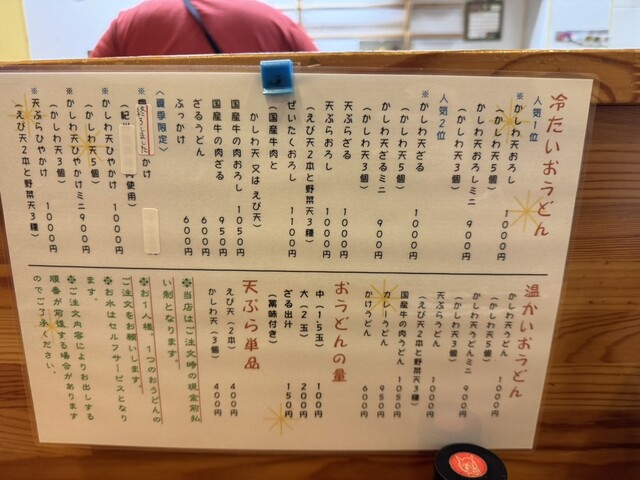 冷たいおうどん
人気1位
※かしわ天おろし
(かしわ天5個) 1000円
かしわ天おろしミニ
(かしわ天3個) 900円
人気2位
※かしわ天ざる
(かしわ天5個) 1000円
かしわ天ざるミニ
(かしわ天3個) 900円
天ぷらざる 1000円
天ぷらおろし 1000円
(えび天2本と野菜天3種)
ぜいたくおろし 1100円
(国産牛の肉と
かしわ天 又は えび天)
国産牛の肉おろし 1050円
国産牛の肉ざる 950円
ざるうどん 600円
ぶっかけ 600円
〈夏季限定〉
※
終了しました
かけ
(紀
使用)
※かしわ天ひやかけ 1000円
(かしわ天5個)
※かしわ天ひやかけミニ 900円
(かしわ天3個)
※天ぷらひやかけ 1000円
(えび天2本と野菜天3種)
温かいおうどん
かしわ天うどん
(かしわ天5個) 1000円
かしわ天うどんミニ
(かしわ天3個) 900円
天ぷらうどん 1000円
(えび天2本と野菜天3種)
国産牛の肉うどん 1050円
カレーうどん 950円
かけうどん 600円
おうどんの量
中(1.5玉) 100円
大(2玉) 200円
ざる出汁 150円
(薬味付き)
天ぷら単品
えび天(2本) 400円
かしわ天(3個) 400円
✽当店はご注文時の現金前払
い制となります。
✽お1人様、1つのおうどんの
ご注文をお願いします。
✽お水はセルフサービスとなり
ます。
✽ご注文内容によりお出しする
順番が前後する場合があります
のでご了承ください。